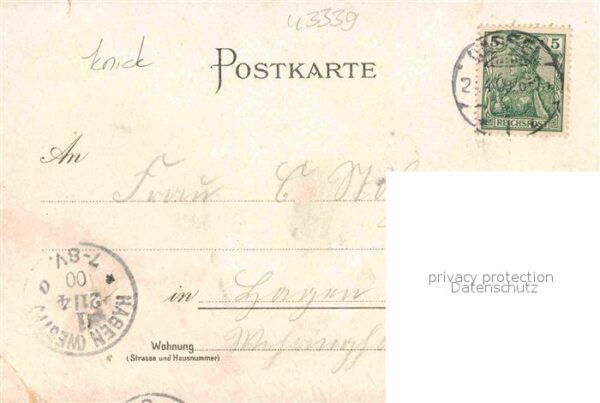 43339
knick
POSTKARTE
5
REICHSPOST
An
Frau C
privacy protection
Datenschutz
in Hagen
HAGEN (WESTF.)
21/4
00
7-8V.
Wohnung
(Strasse und Hausnummer)